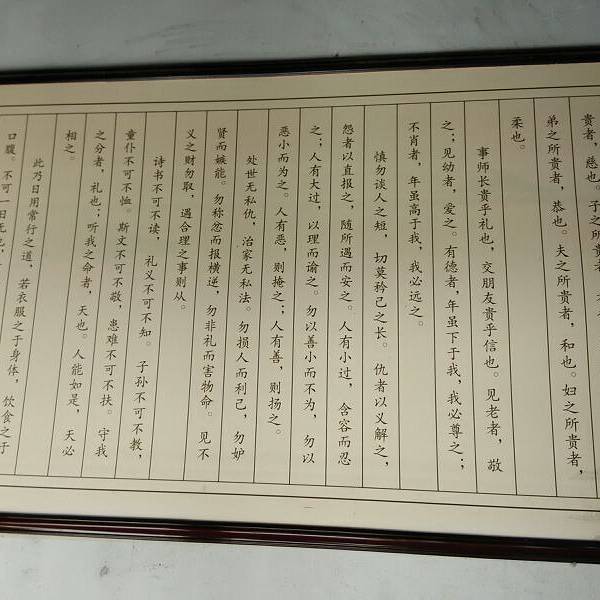 贵者，慈也。子之所贵者，
弟之所贵者，恭也。夫之所贵者，和也。妇之所贵者，
柔也。
事师长贵乎礼也，交朋友贵乎信也。见老者，敬
之；见幼者，爱之。有德者，年虽下于我，我必尊之；
不肖者，年虽高于我，我必远之。
慎勿谈人之短，切莫矜己之长。仇者以义解之，
怨者以直报之，随所遇而安之。人有小过，含容而忍
之；人有大过，以理而谕之。勿以善小而不为，勿以
恶小而为之。人有恶，则掩之；人有善，则扬之。
处世无私仇，治家无私法。勿损人而利己，勿妒
贤而嫉能。勿称忿而报横逆，勿非礼而害物命。见不
义之财勿取，遇合理之事则从。
诗书不可不读，礼义不可不知。子孙不可不教，
童仆不可不恤。斯文不可不敬，患难不可不扶。守我
之分者，礼也；听我之命者，天也。人能如是，天必
相之。
此乃日用常行之道，若衣服之于身体，饮食之于
口腹。不可一日无也，